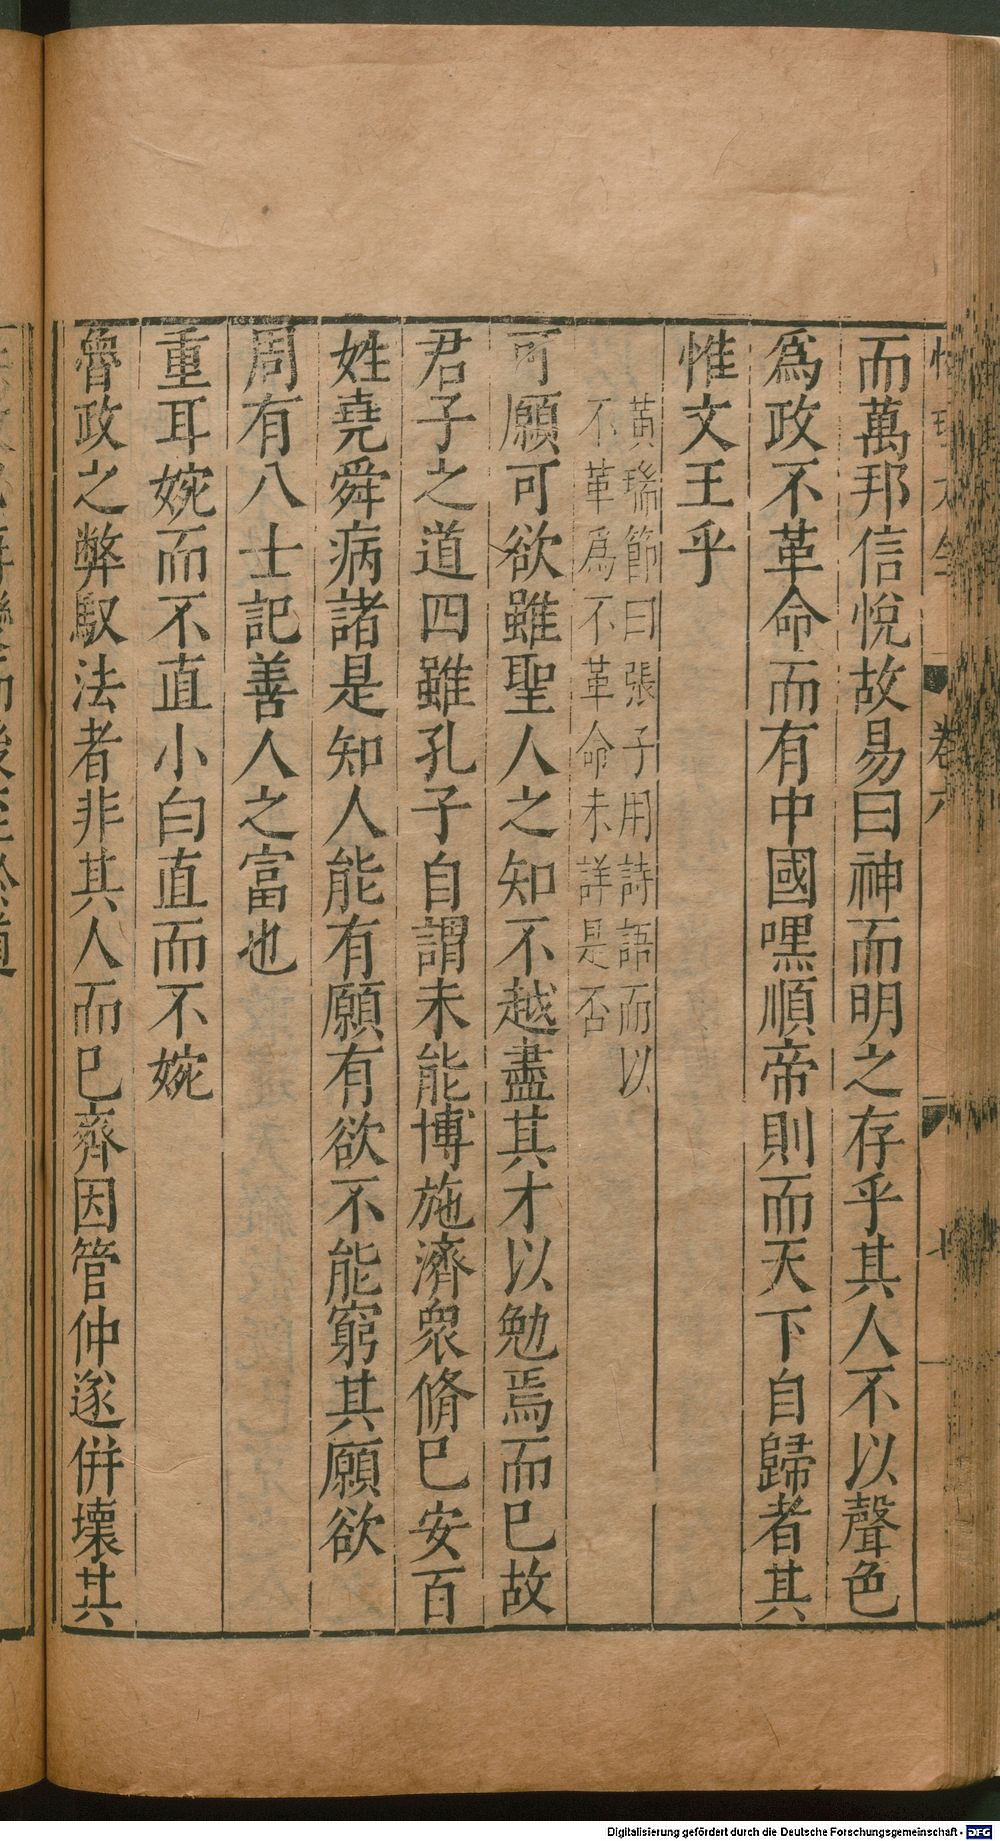 而萬邦信悅故易曰神而明之存乎其人不以聲色
爲政不革命而有中國嘿順帝則而天下自歸者其
惟文王乎
黃瑞節曰張子用詩語而以
不革爲不革命未詳是否
可願可欲雖聖人之知不越盡其才以勉焉而已故
君子之道四雖孔子自謂未能博施濟衆脩已安百
姓堯舜病諸是知人能有願有欲不能窮其願欲
周有八士記善人之富也
重耳婉而不直小白直而不婉
魯政之弊馭法者非其人而已齊因管仲遂併壞其
卷六
Digitalisierung gefördert durch die Deutsche Forschungsgemeinschaft - DFG